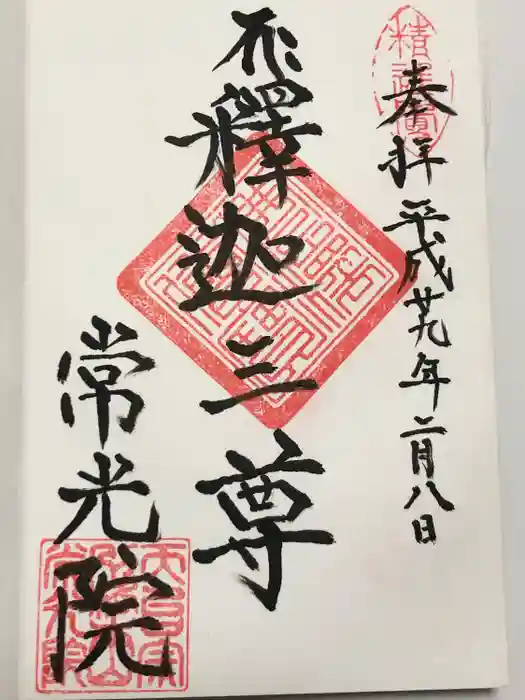 奉拝
平成廿九年二月八日
釋迦三尊
常光院